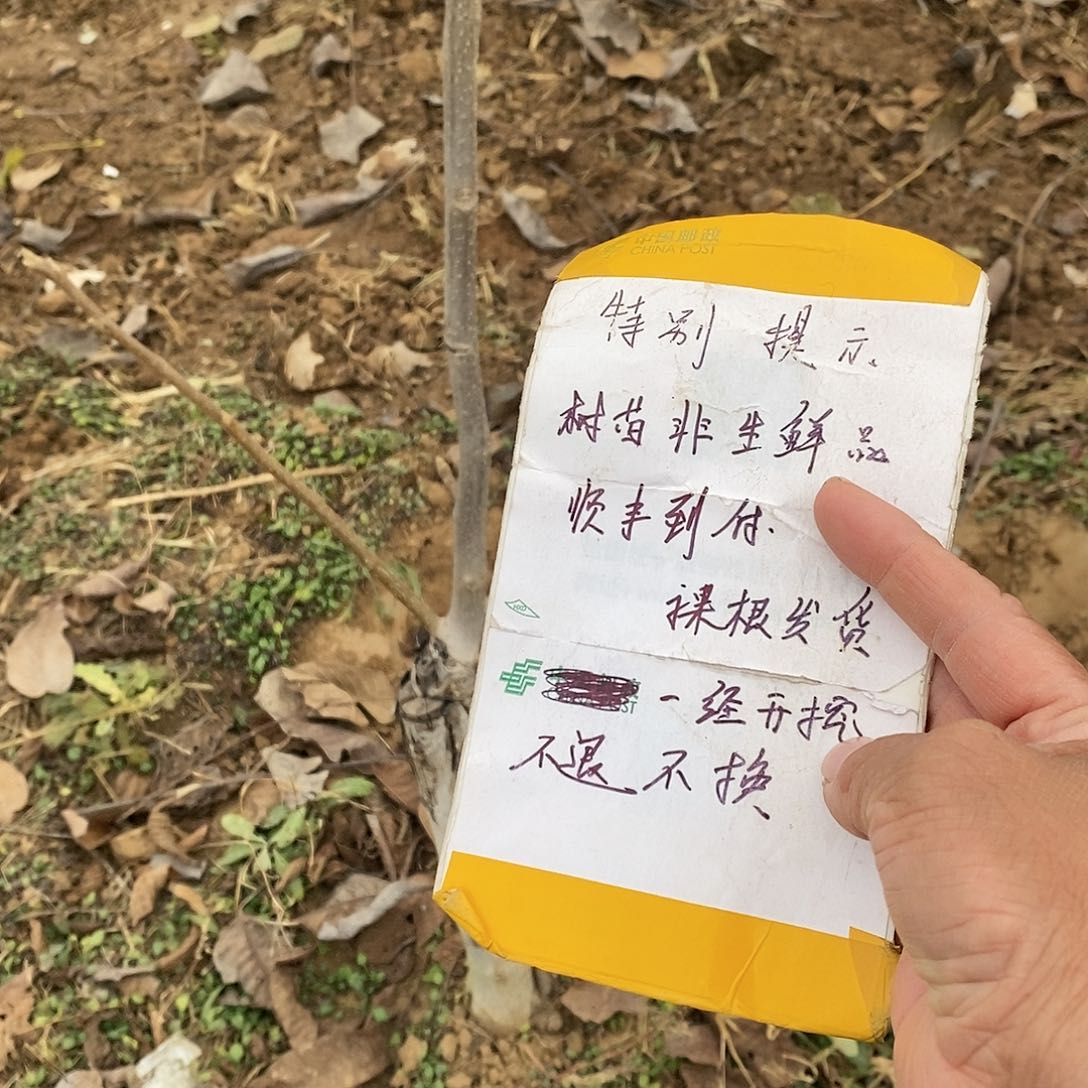 中国邮政
CHINA POST
特别 提示
树苗非生鲜品
顺丰到付.
裸根发货
HXD
一经开挖
不退不换